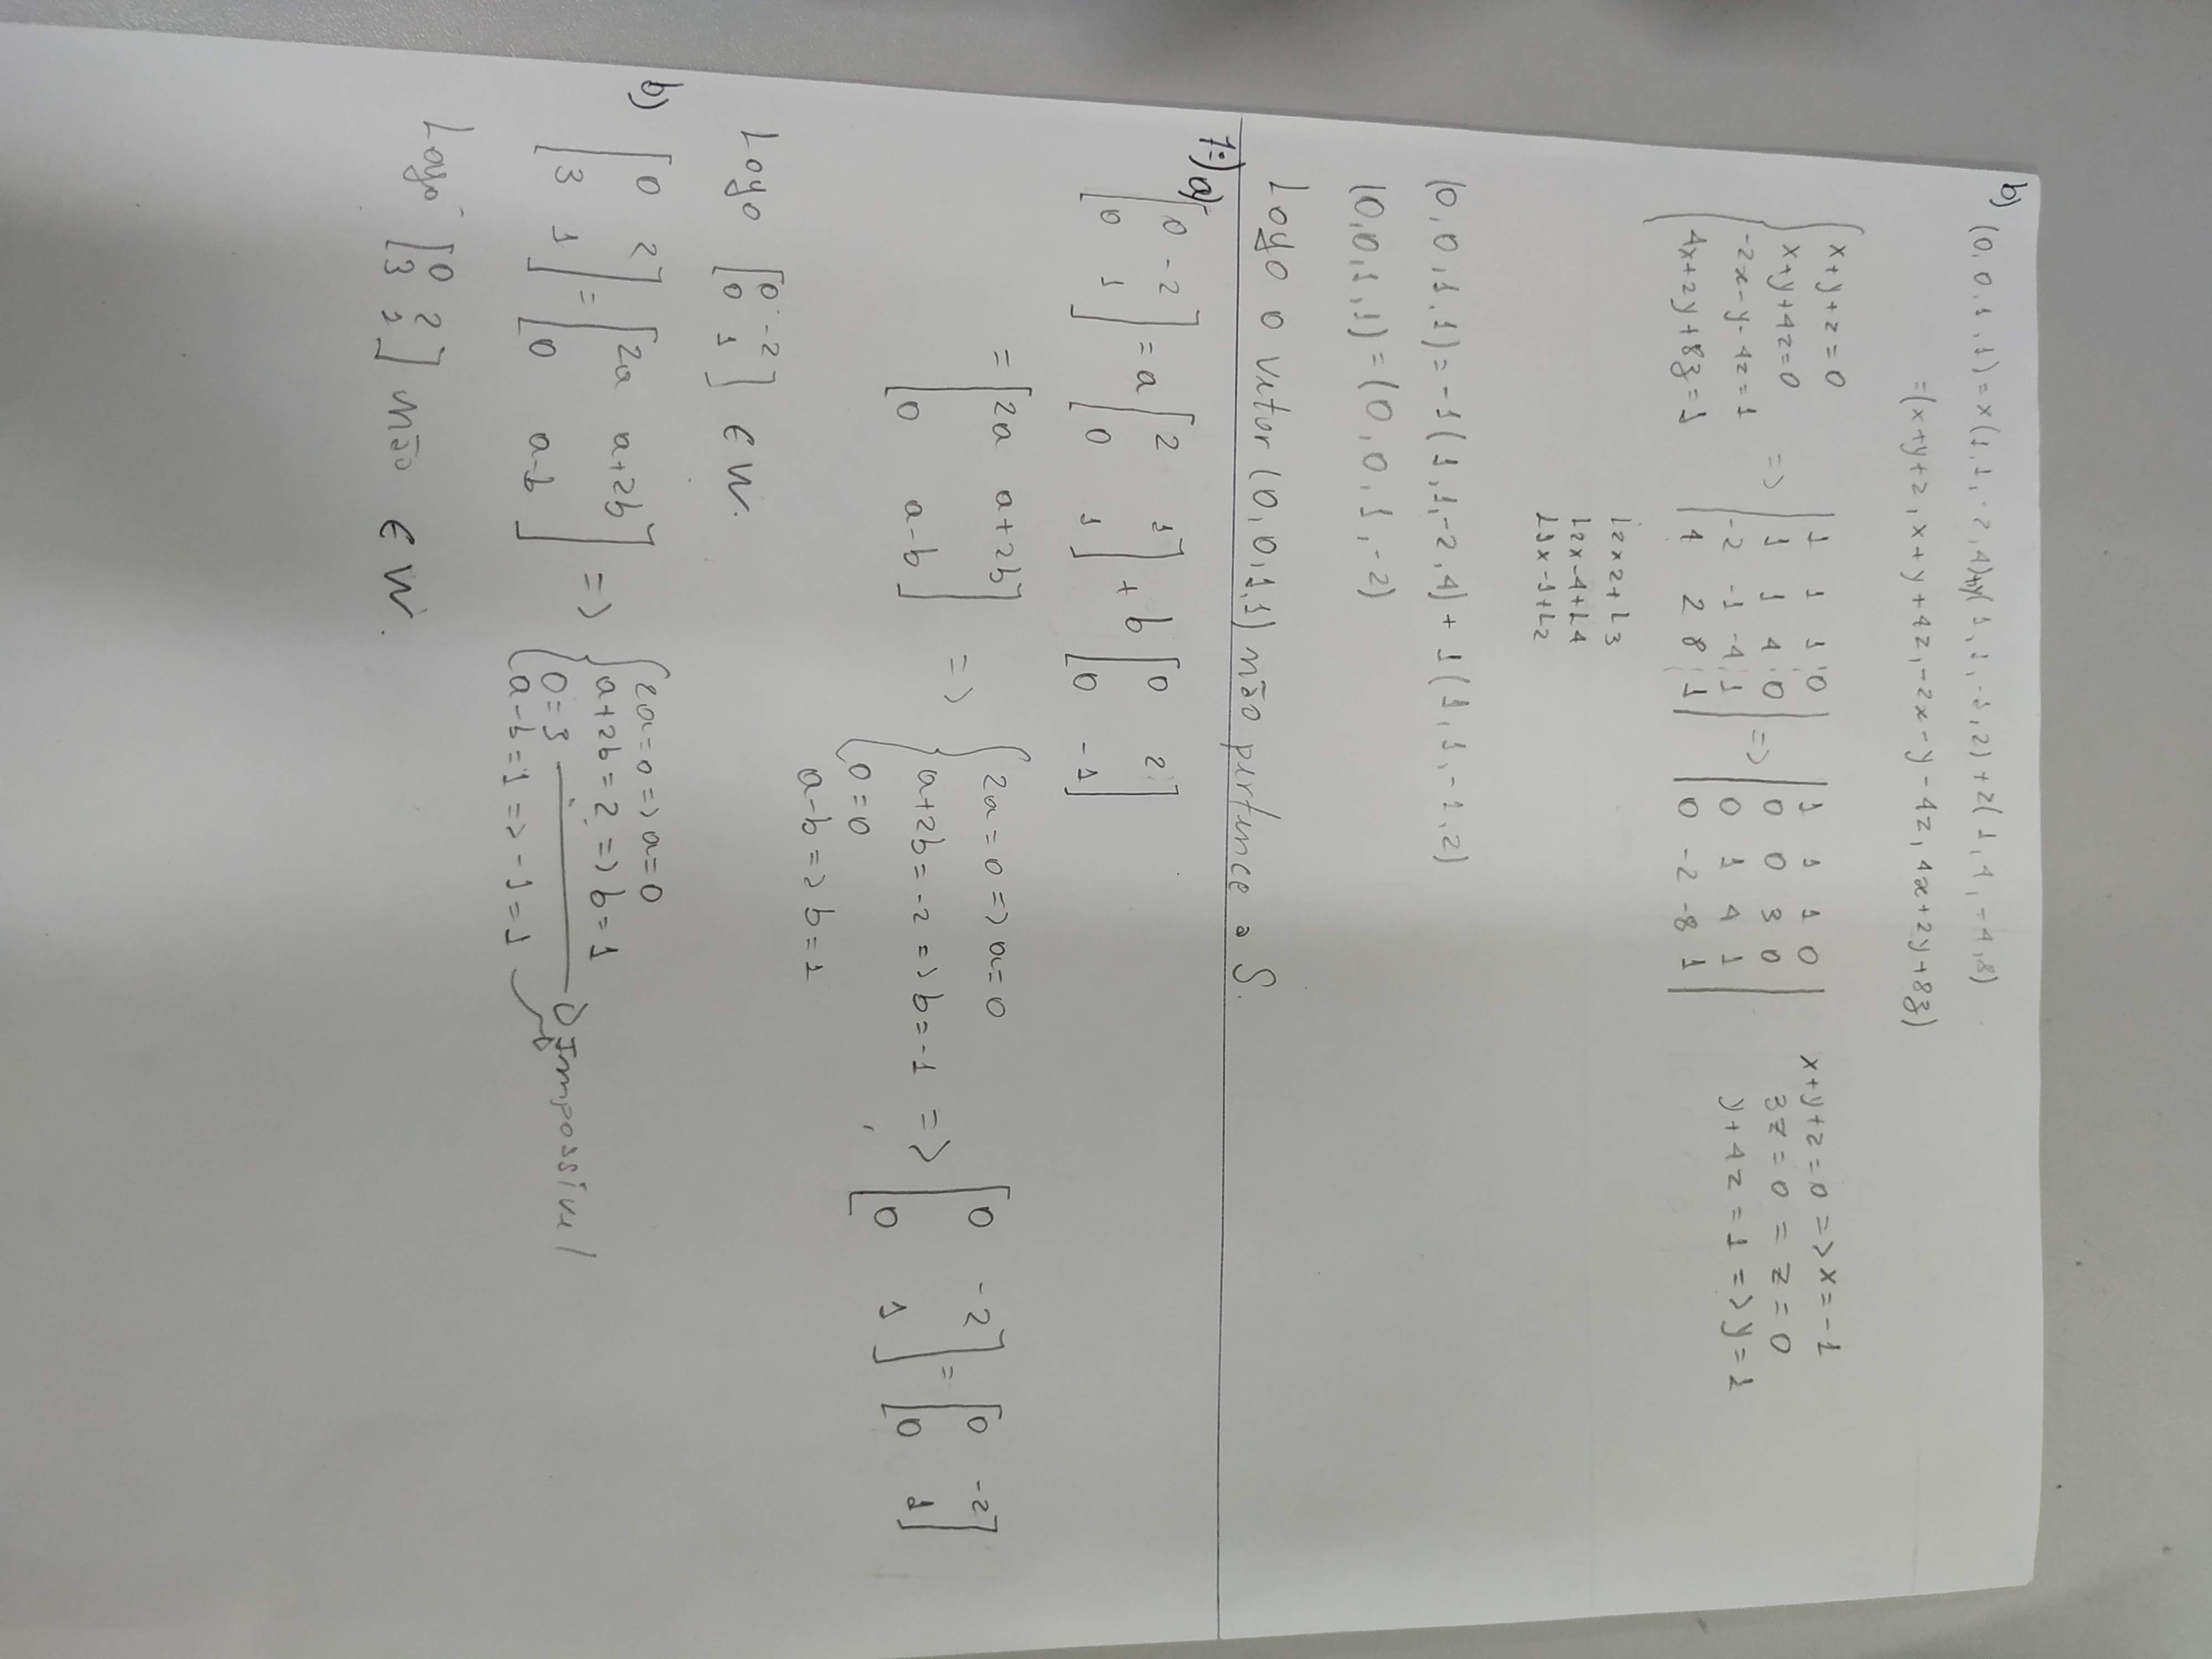 b) (0,0,1,1) = x(1,1,-2,4)+y(1,1,-1,2)+z(1,4,-4,8)
=(x+y+z, x+y+4z, -2x-y-4z, 4x+2y+8z)
{ x+y+z=0
x+y+4z=0
-2x-y-4z=1
4x+2y+8z=1
=> | 1 1 1 | 0
1 1 4 | 0
-2 -1 -4 | 1
4 2 8 | 1 |
=> | 1 1 1 0
0 0 3 0
0 1 4 1
0 -2 -8 1 |
x+y+z=0 => x=-1
3z=0 = z=0
y+4z=1 => y=1
L2x2+L3
L2x-4+L4
L1x-1+L2
(0,0,1,1) = -1(1,1,-2,4) + 1(1,1,-1,2)
(0,0,1,1) = (0,0,1,-2)
Logo o vetor (0,0,1,1) não pertence a S.
7=) a) [0 -2] = a [2 1] + b [0 2]
[0 1] [0 1] [0 -1]
= [2a a+2b]
[0 a-b] =>
{ 2a=0 => a=0
a+2b=-2 => b=-1 =>
0=0
a-b=> b=1
[0 -2] = [0 -2]
[0 1] [0 1]
Logo [0 -2] ∈ W.
[0 1]
b) [0 2] = [2a a+2b] =>
[3 1] [0 a-b]
{ 2a=0 => a=0
a+2b=2 => b=1
0=3
a-b=1 => -1=1
Impossivel
Logo [0 2] não ∈ W.
[3 1]